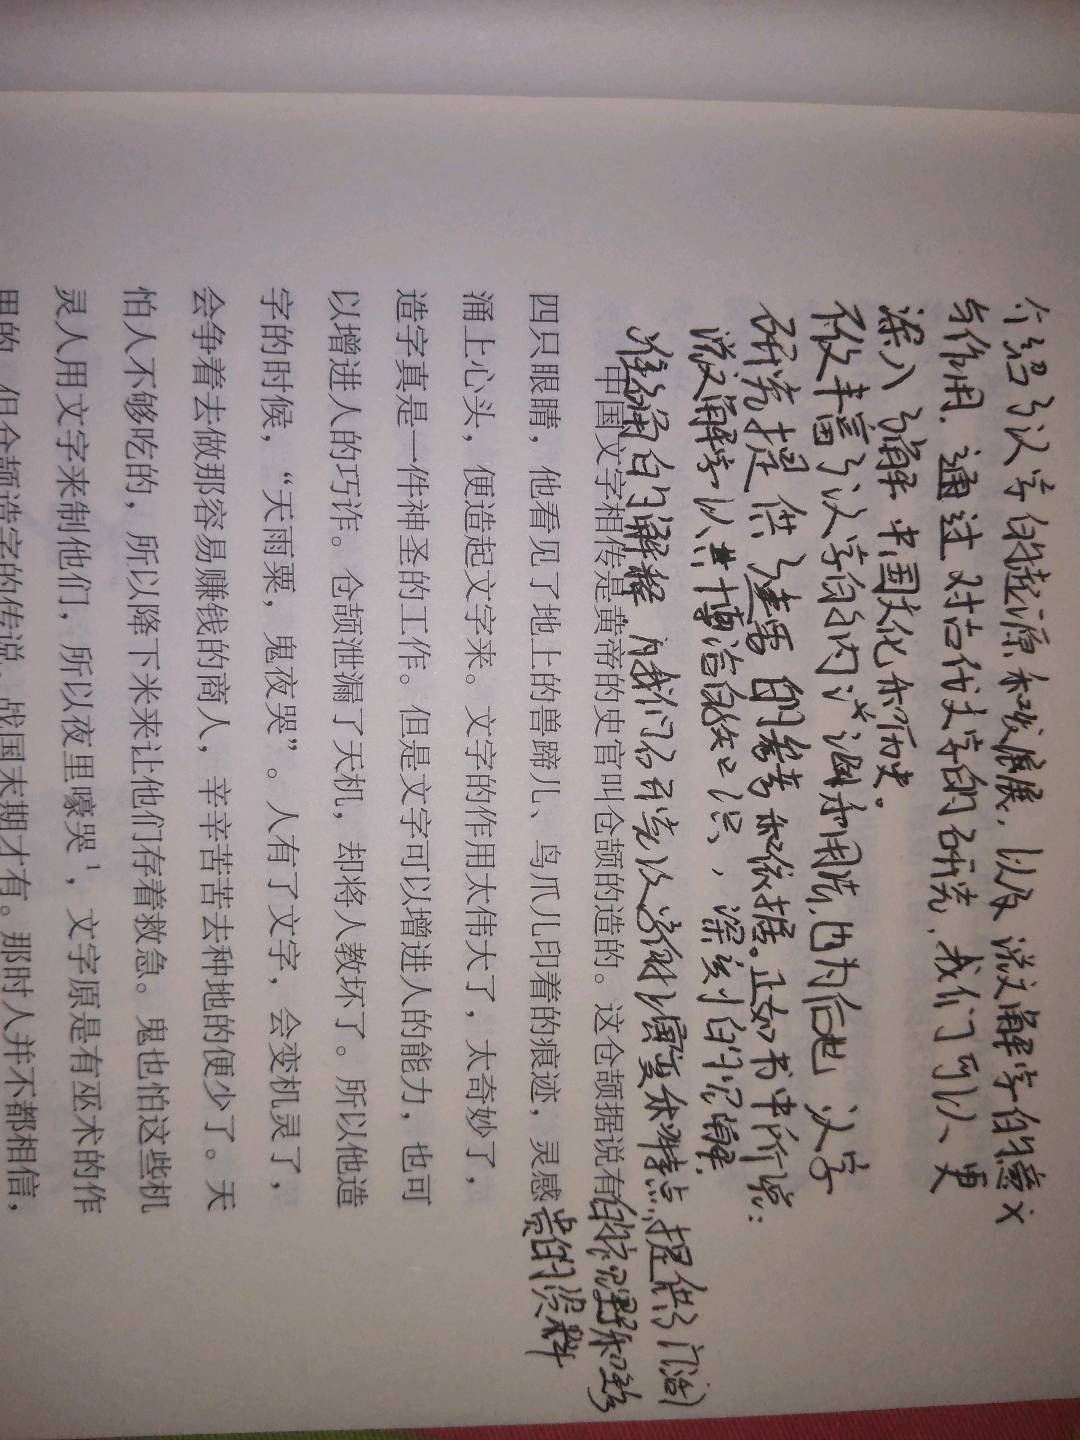 介绍了汉字的起源和发展，以及说文解字的意义
与作用，通过对古代文字的研究，我们可以更
深入了解中国文化和历史。
丰富了汉字的内涵和用法，也为后起汉字
研究提供了的参考和依据。正如书中所说：
说文解字以其博洽的知识，深刻的见解，
准确的解释，为我们研究汉字的演变和特点提供了
的理解和
贵的资料
中国文字相传是黄帝的史官叫仓颉的造的。这仓颉据说有
四只眼睛，他看见了地上的兽蹄儿、鸟爪儿印着的痕迹，灵感
涌上心头，便造起文字来。文字的作用太伟大了，太奇妙了，
造字真是一件神圣的工作。但是文字可以增进人的能力，也可
以增进人的巧诈。仓颉泄漏了天机，却将人教坏了。所以他造
字的时候，“天雨粟，鬼夜哭”。人有了文字，会变机灵了，
会争着去做那容易赚钱的商人，辛辛苦苦去种地的便少了。天
怕人不够吃的，所以降下米来让他们存着救急。鬼也怕这些机
灵人用文字来制他们，所以夜里嚎哭1，文字原是有巫术的作
里的，但仓颉造字的传说，战国末期才有。那时人并不都相信，